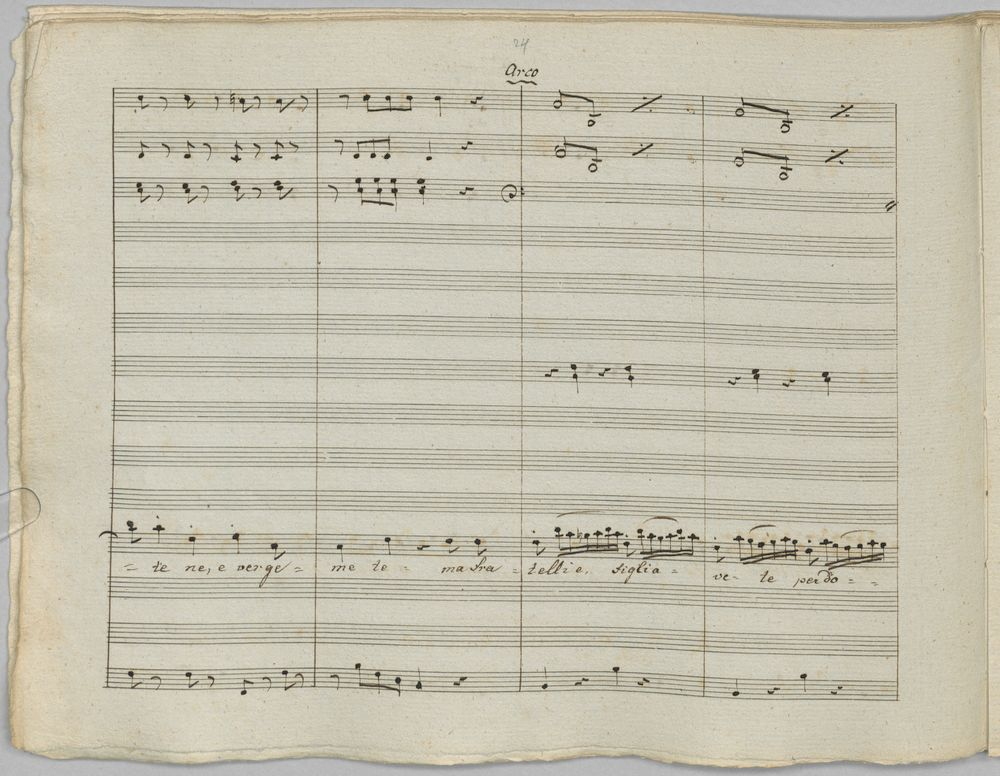 24
Arco
= te ne, e verge = me te = ma fra = tellie, figlia = ve- te perdo = =